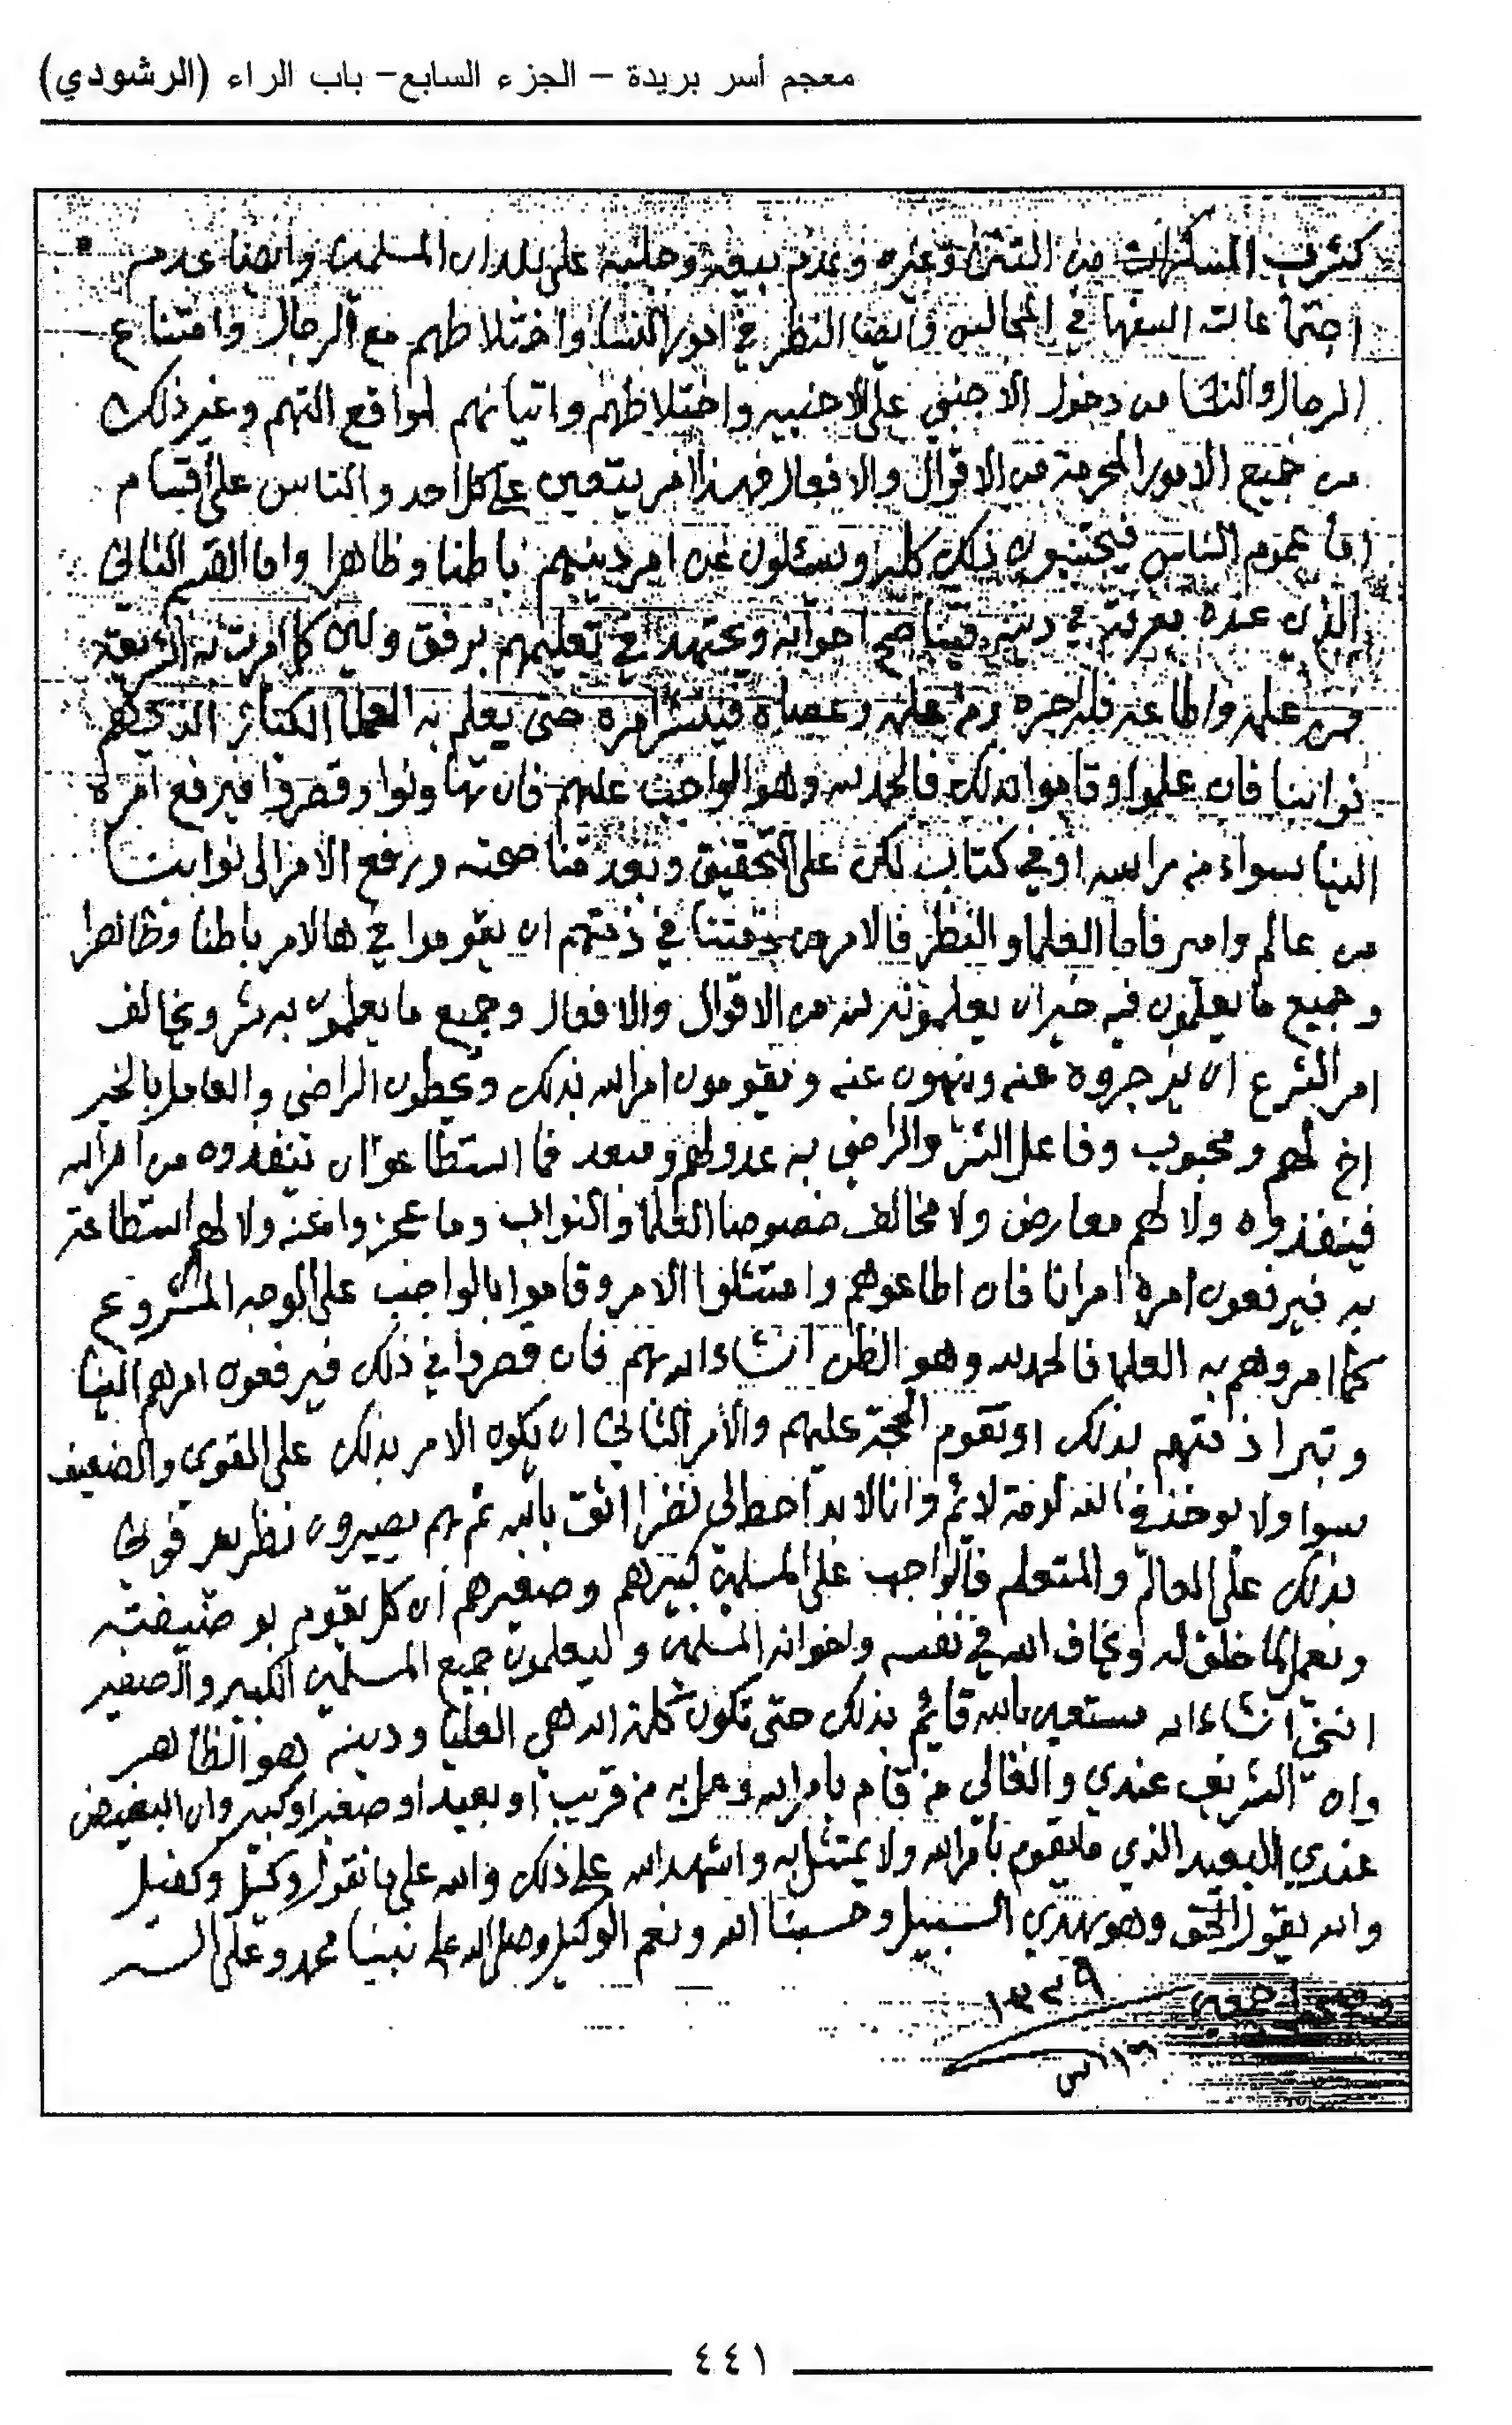 معجم أسر بريدة – الجزء السابع– باب الراء (الرشودي)
كشرب المسكرات من التتن وغيره وعدم بيعه وجلبه على بلدان المسلمين وايضا عدم
اجتماعات السفها في المجالس وايضا النظر في امور النسا واختلاطهم مع الرجال وامتناع
الرجال والنسا من دخول الاجنبي على الاجنبيه واختلاطهم واتيانهم لمواقع التهم وغير ذلك
من جميع الامور المحرمة من الاقوال والافعال فهذا امر يتعين على كل احد والناس على اقسام
اما عموم الناس فيجتنبون ذلك كله ويسئلون عن امر دينهم باطنا وظاهرا واما القسم الثاني
الذي عنده معرفة في دينه فيناصح اخوانه ويجتهد في تعليمهم برفق ولين كما امرت به الشريعة
فمن علمه واطاعه فله اجره ومن علمه وعصاه فينشر امره حتى يعلم به العلما الكبار الذي هم
نوابنا فان علموا وقاموا بذلك فالحمد لله وهو الواجب عليهم فان تهاونوا وقصروا فيرفع امره
الينا سواء من راسه او في كتاب لكن على التحقيق وبعد مناصحته ورفع الامر الى نوابنا
من عالم وامير فاما العلما والنظر فالامر من ذمتنا في ذمتهم ان يقوموا في هالامر باطنا وظاهرا
وجميع ما يعلمون فيه خير ان يعلمونه من الاقوال والافعال وجميع ما يعلمون به شر ويخالف
امر الشرع ان يزجروه عنه وينهون عنه ويقومون امر الله بذلك ويحطون الراضي والعامل بالخير
اخ لهم ومحبوب وفاعل الشر والراضي به عدو لهم ومبعد فما استطاعوا ان ينفذوه من امر الله
فينفذوه ولا لهم معارض ولا مخالف خصوصا العلما والنواب وما عجزوا عنه ولا لهم استطاعة
به فيرفعون امره امرانا فان اطاعوهم وامتثلوا الامر وقاموا بالواجب على الوجه المشروع
كما امروهم به العلما فالحمد لله وهو الظن انشاء الله بهم فان قصروا في ذلك فيرفعون امرهم الينا
وتبرا ذمتهم بذلك او تقوم الحجة عليهم والامر الثاني ان يكون الامر بذلك على القوي والضعيف
سوا ولا يوخذ في الله لومة لائم وانا لا بد احط لي نضرا اثق بالله ثم بهم يصيرون نظر بعد قولي
بذلك على العالم والمتعلم فالواجب على المسلمين كبيرهم وصغيرهم ان كل يقوم بوضيفته
ويعمل لما خلق له ويخاف الله في نفسه واخوانه المسلمين وليعلمون جميع المسلمين الكبير والصغير
انني انشاء الله مستعين بالله قائم بذلك حتى تكون كلمة الله هي العليا ودينه هو الظاهر
وان الشريف عندي والغالي من قام بامر الله وعمل به من قريب او بعيد او صغير او كبير وان البغيض
عندي البعيد الذي ما يقوم بامر الله ولا يمتثل به واشهد الله على ذلك والله على ما نقول وكيل وكفيل
والله يقول الحق وهو يهدي السبيل وحسبنا الله ونعم الوكيل وصلى الله على نبينا محمد وعلى اله
وصحبه اجمعين
٤٤١